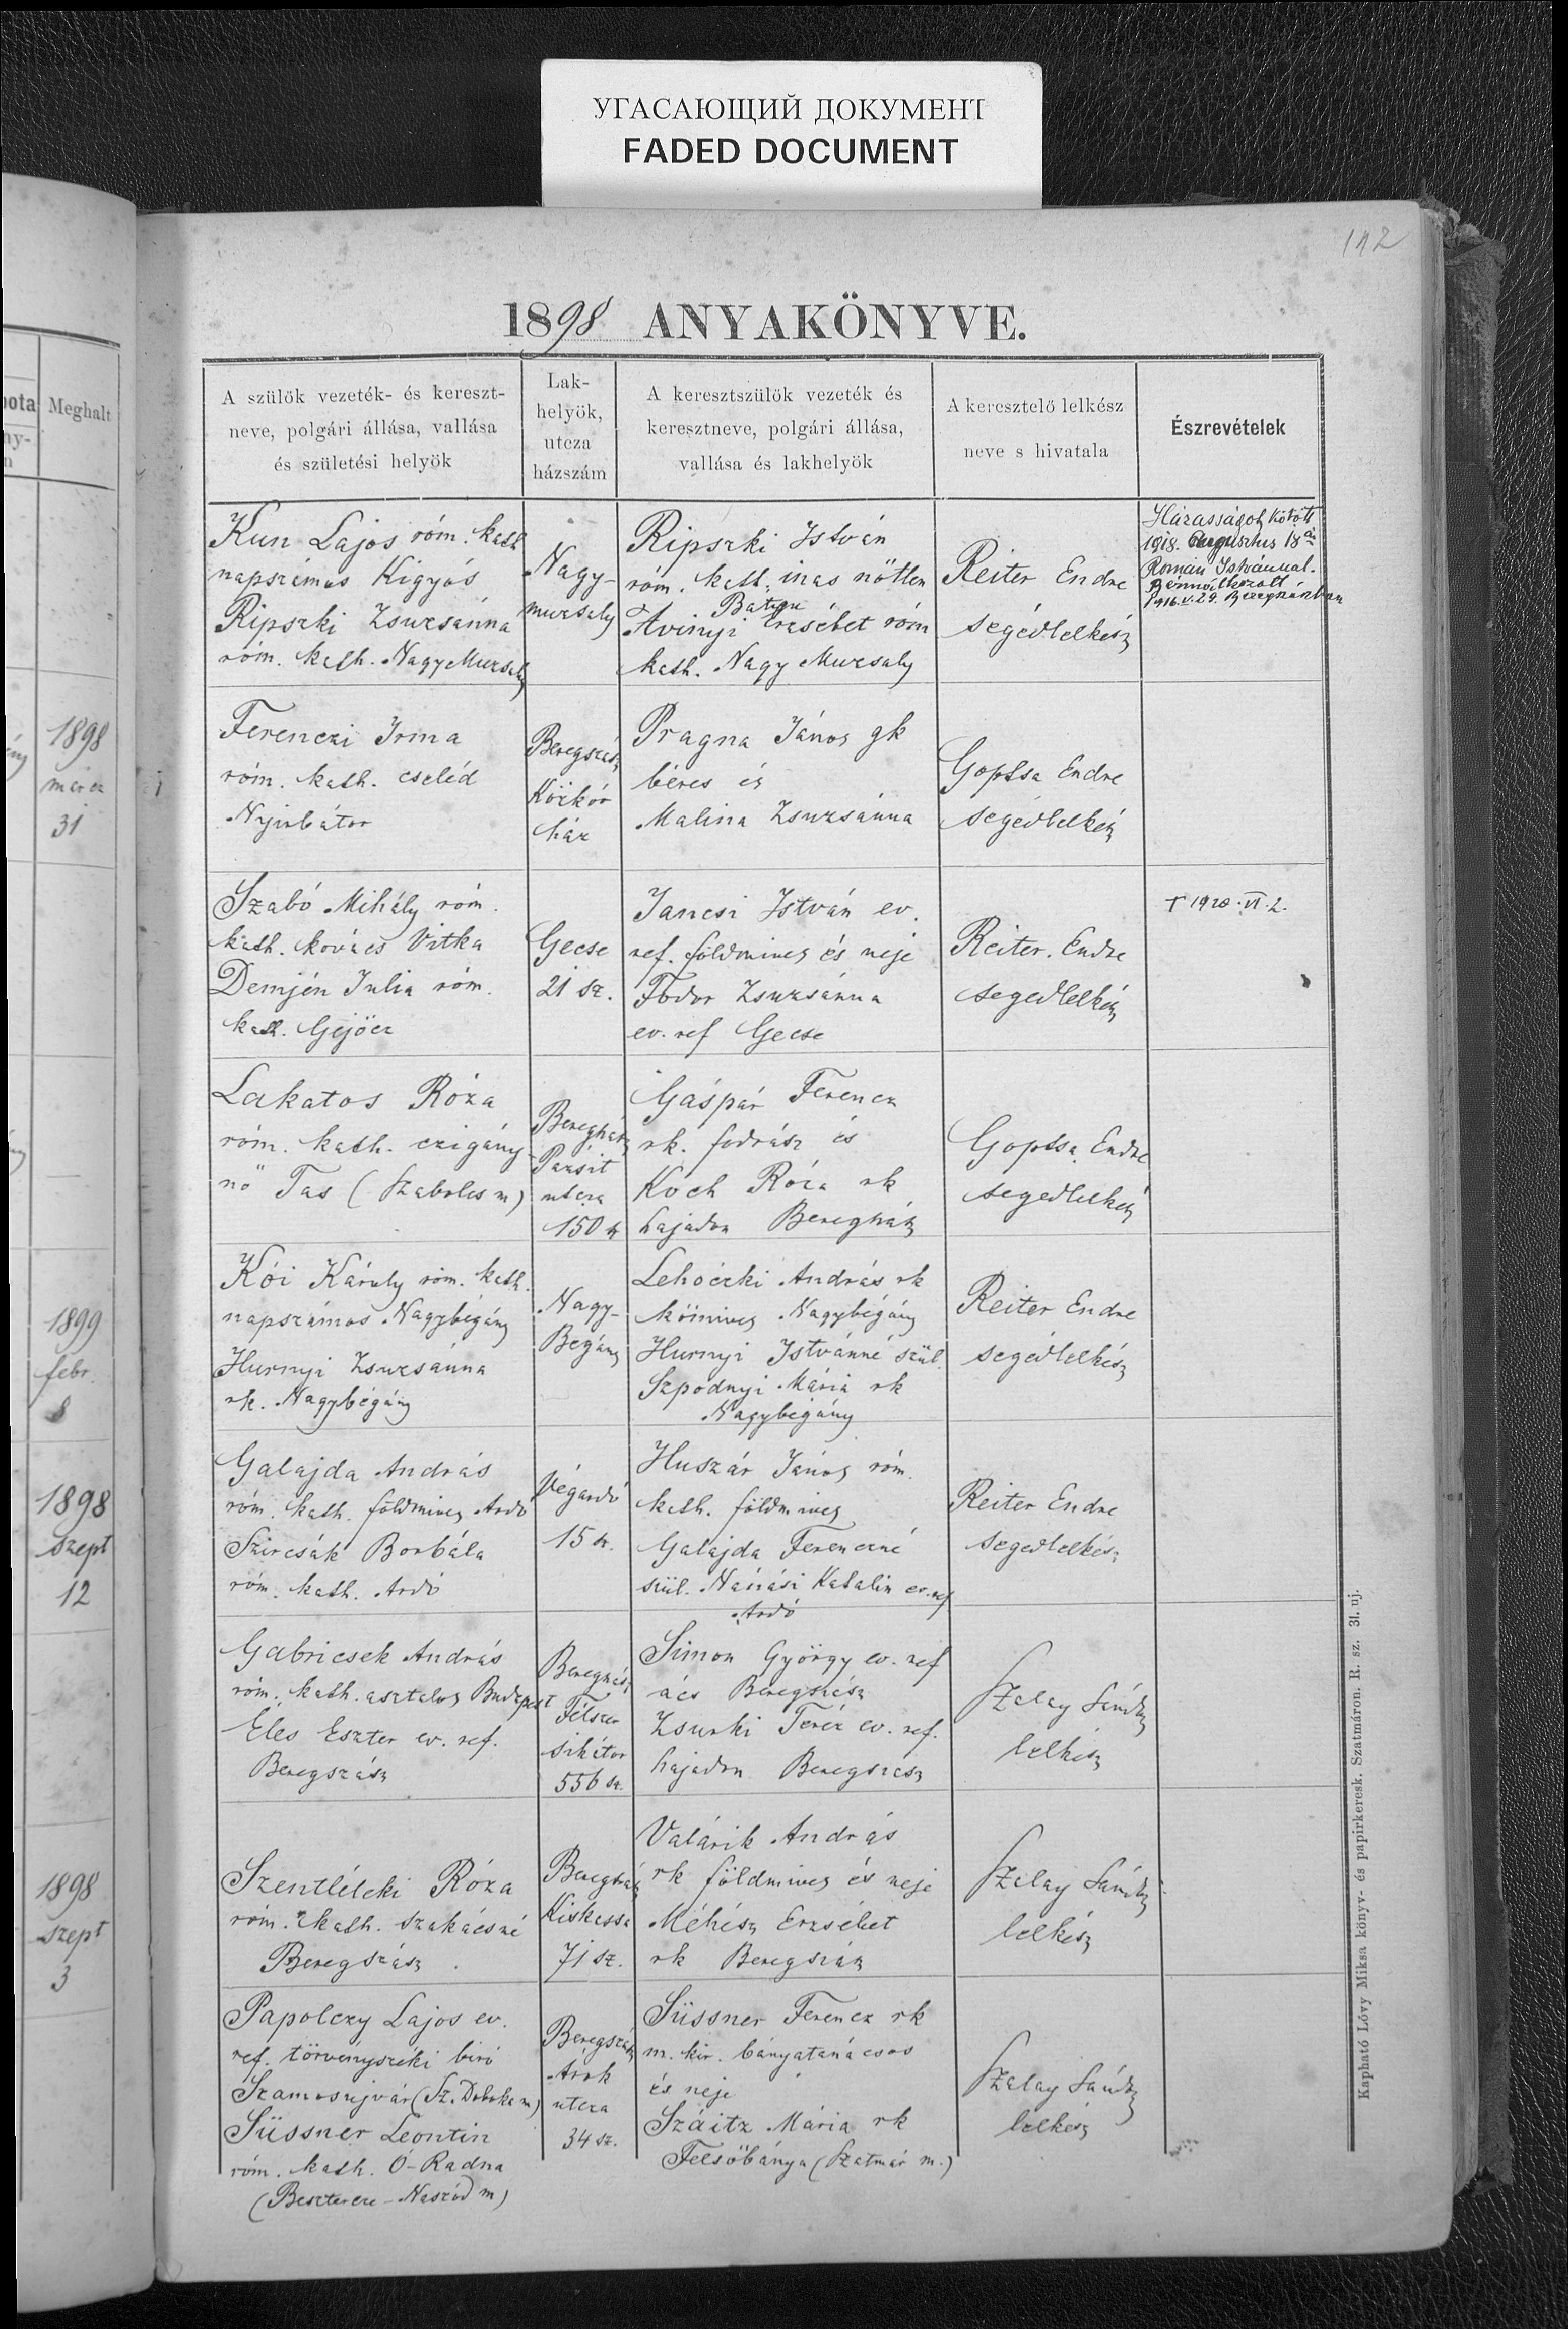 УГАСАЮЩИЙ ДОКУМЕНТ
FADED DOCUMENT
1898 ANYAKÖNYVE.
Meghalt
A szülök vezeték- és kereszt-
neve, polgári állása, vallása
és születési helyök
Lak-
helyök,
utcza
házszám
A keresztszülök vezeték és
keresztneve, polgári állása,
vallása és lakhelyök
A keresztelő lelkész
neve s hivatala
Észrevételek
Kun Lajos róm. kath
napszámos Kigyós
Ripszki Zsuzsánna
róm. kath. Nagy Muzsaly
Nagy-
muzsaly
Ripszki István
róm. kath. inas nötlen
Erzsébet róm
kath. Nagy Muzsaly
Reiter Endre
segédlelkész
Házasságot kötött
1918. Augusztus 18án
Román Istvánnal.
Bérmálkozott
1916.V.29. Beregszászban
1898
márcz
31
Ferenczi Irma
róm. kath. cseléd
Nyirbátor
Beregszász
Közkór
ház
Pragna János gk
béres és
Malina Zsuzsánna
Gopssa Endre
segédlelkész
Szabó Mihály róm.
kath. kovács Vitka
Demjén Julia róm.
kath. Gejöcz
Gecse
21 sz.
Jancsi István ev.
ref. földmives és neje
Fodor Zsuzsánna
ev. ref Gecse
Reiter. Endre
segedlelkész
† 1920. VI. 2.
Lakatos Róza
róm. kath. czigány
nö Tas (Szabolcs m)
Beregszász
Pázsit
utcza
150 sz
Gáspár Ferencz
rk. fodrász és
Koch Róza rk
hajadon Beregszász
Gopssa Endre
segedlelkész
1899
febr.
8
Kói Károly róm. kath.
napszámos Nagybégány
Hurnyi Zsuzsánna
rk. Nagybégány
Nagy-
Begány
Lehóczki András rk
kömives Nagybégány
Hurnyi Istvánné szül.
Szpodnyi Mária rk
Nagybégány
Reiter Endre
segédlelkész
1898
szept
12
Galajda András
róm. kath. földmives Ardó
Szircsák Borbála
róm. kath. Ardó
Végardó
15 sz.
Huszár János róm.
kath. földmives
Galajda Ferenczné
szül. Nánási Katalin ev. ref
Ardó
Reiter Endre
segedlelkész
Gabricsek András
róm. kath. asztalos Budapest
Éles Eszter ev. ref.
Beregszász
Beregszász
Félszer
sikátor
556 sz.
Simon György ev. ref
ács Beregszász
Zsurki Teréz ev. ref.
hajadon Beregszász
Szalay Sándor
lelkész
1898
szept
3
Szentléleki Róza
róm. kath. szakácsné
Beregszász
Beregszász
Kiskassa
71 sz.
Valárik András
rk földmives és neje
Méhész Erzsébet
rk Beregszász
Szalay Sándor
lelkész
Papolczy Lajos ev.
ref. törvényszéki biró
Szamosujvár (Sz. Doboka m)
Süssner Leontin
róm. kath. Ó-Radna
(Besztercze-Naszód m)
Beregszász
Árok
utcza
34 sz.
Süssner Ferencz rk
m. kir. bányatanácsos
és neje
Száitz Mária rk
Felsöbánya (Szatmár m.)
Szalay Sándor
lelkész
Kapható Lővy Miksa könyv- és papirkeresk. Szatmáron. R. sz. 31. uj.